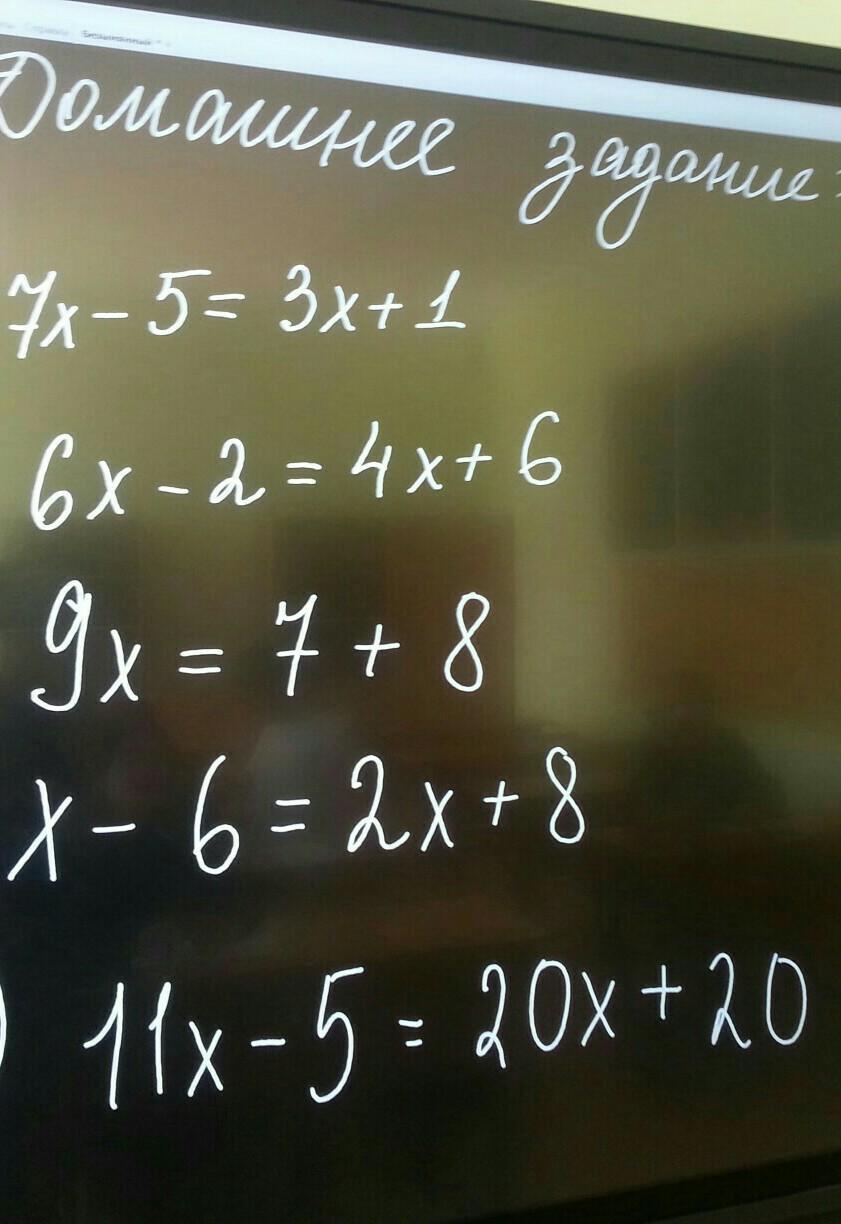 Справка Безымянный *
Домашнее задание:
7x - 5 = 3x + 1
6x - 2 = 4x + 6
9x = 7 + 8
x - 6 = 2x + 8
) 11x - 5 = 20x + 20